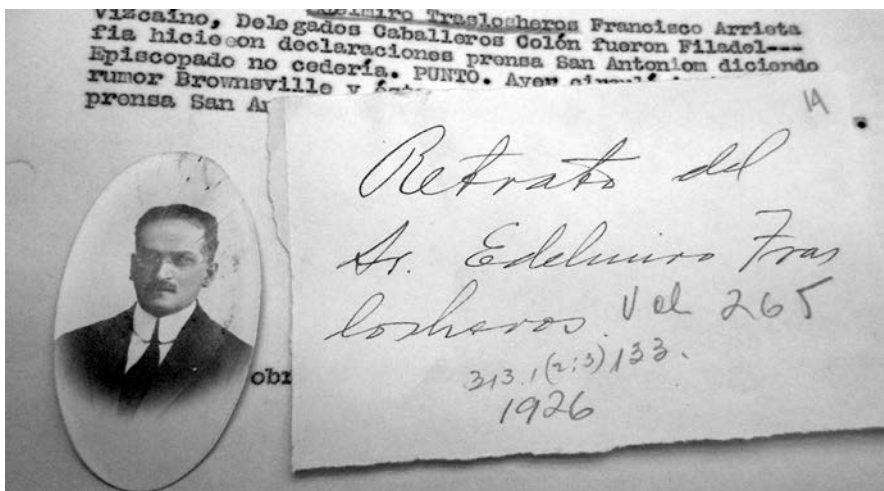 Edelmiro Traslosheros Francisco Arrieta
Vizcaino, Delegados Caballeros Colón fueron Filadel---
fia hicieeon declaraciones prensa San Antoniom diciendo
Episcopado no cedería. PUNTO. Ayer
rumor Brownsville y
prensa San
14
Retrato del
Sr. Edelmiro Tras
losheros. Vol 265
313.1(2:3)133.
1926
obr